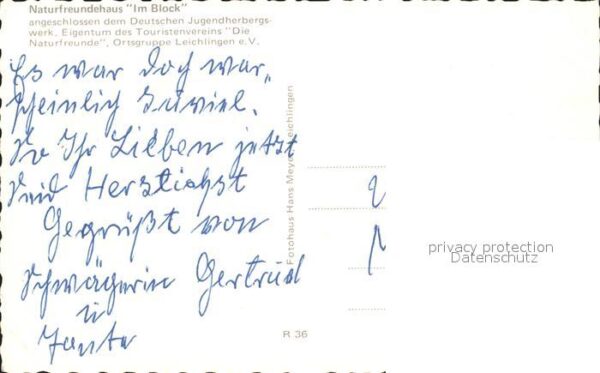 Naturfreundehaus "Im Block"
angeschlossen dem Deutschen Jugendherbergs-
werk. Eigentum des Touristenvereins "Die
Naturfreunde", Ortsgruppe Leichlingen e.V.
Es war doch war„
scheinlich zuviel.
So Ihr Lieben jetzt
Seid Herzlichst
Gegrüßt von
Schwägerin Gertrud
u
Tante
Fotohaus Hans Meyer, Leichlingen
privacy protection
Datenschutz
R 36